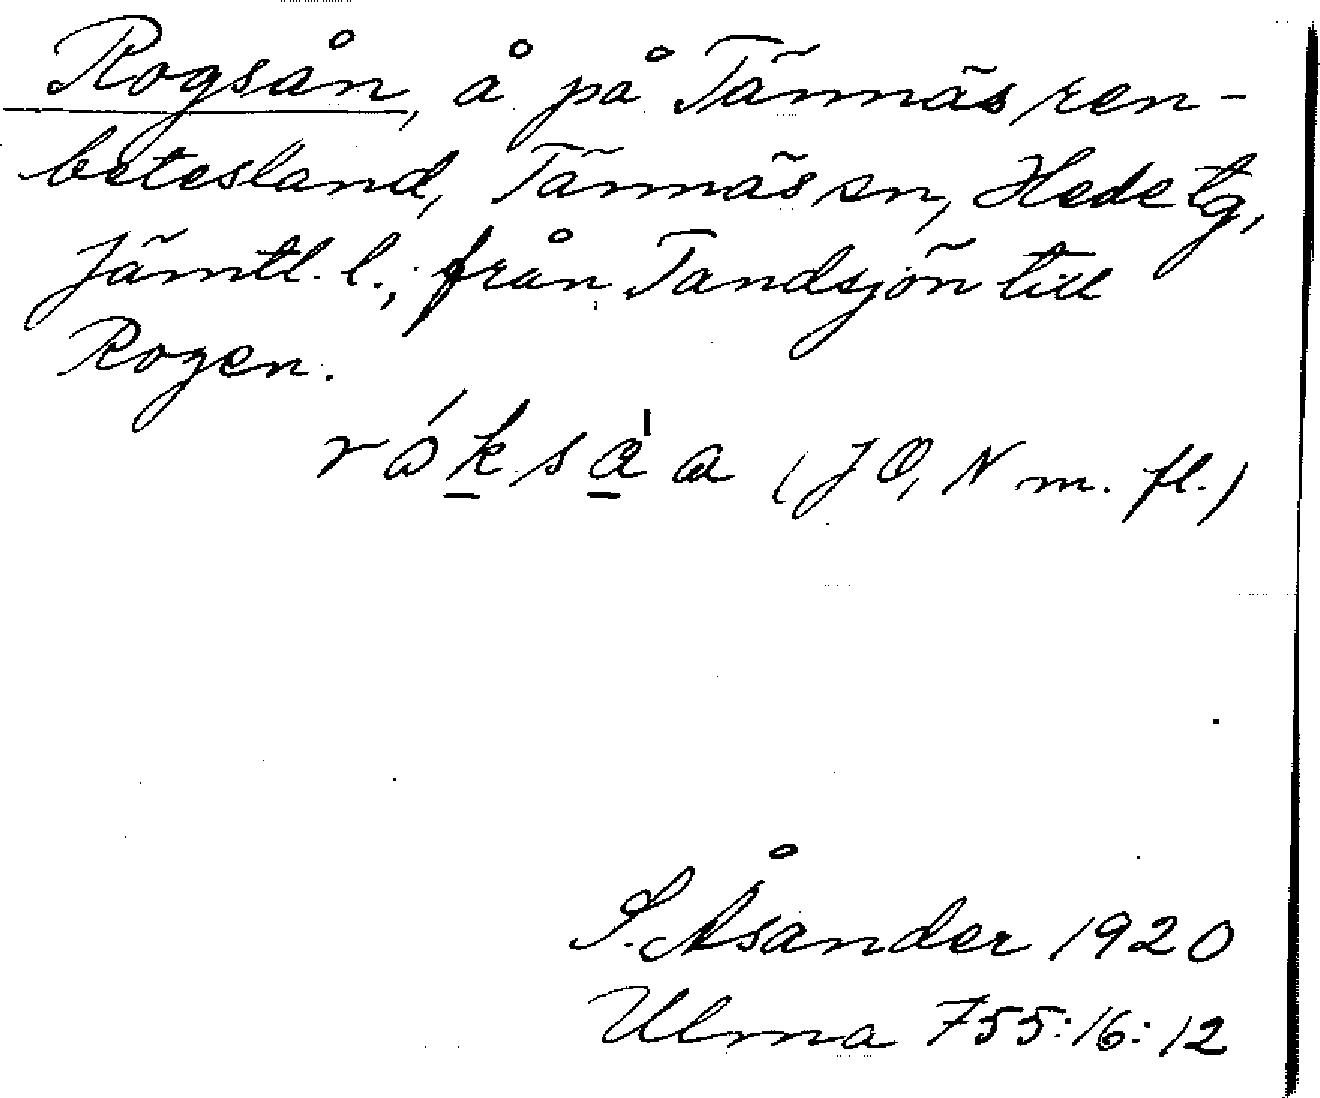 Rogsån, å på Tännäs ren-
betesland, Tännäs sn, Hede tg,
Jämtl. l., från Tandsjön till
Rogen.
róksa̍a (JO, N m. fl.)
S. Åsander 1920
Ulma 755:16:12